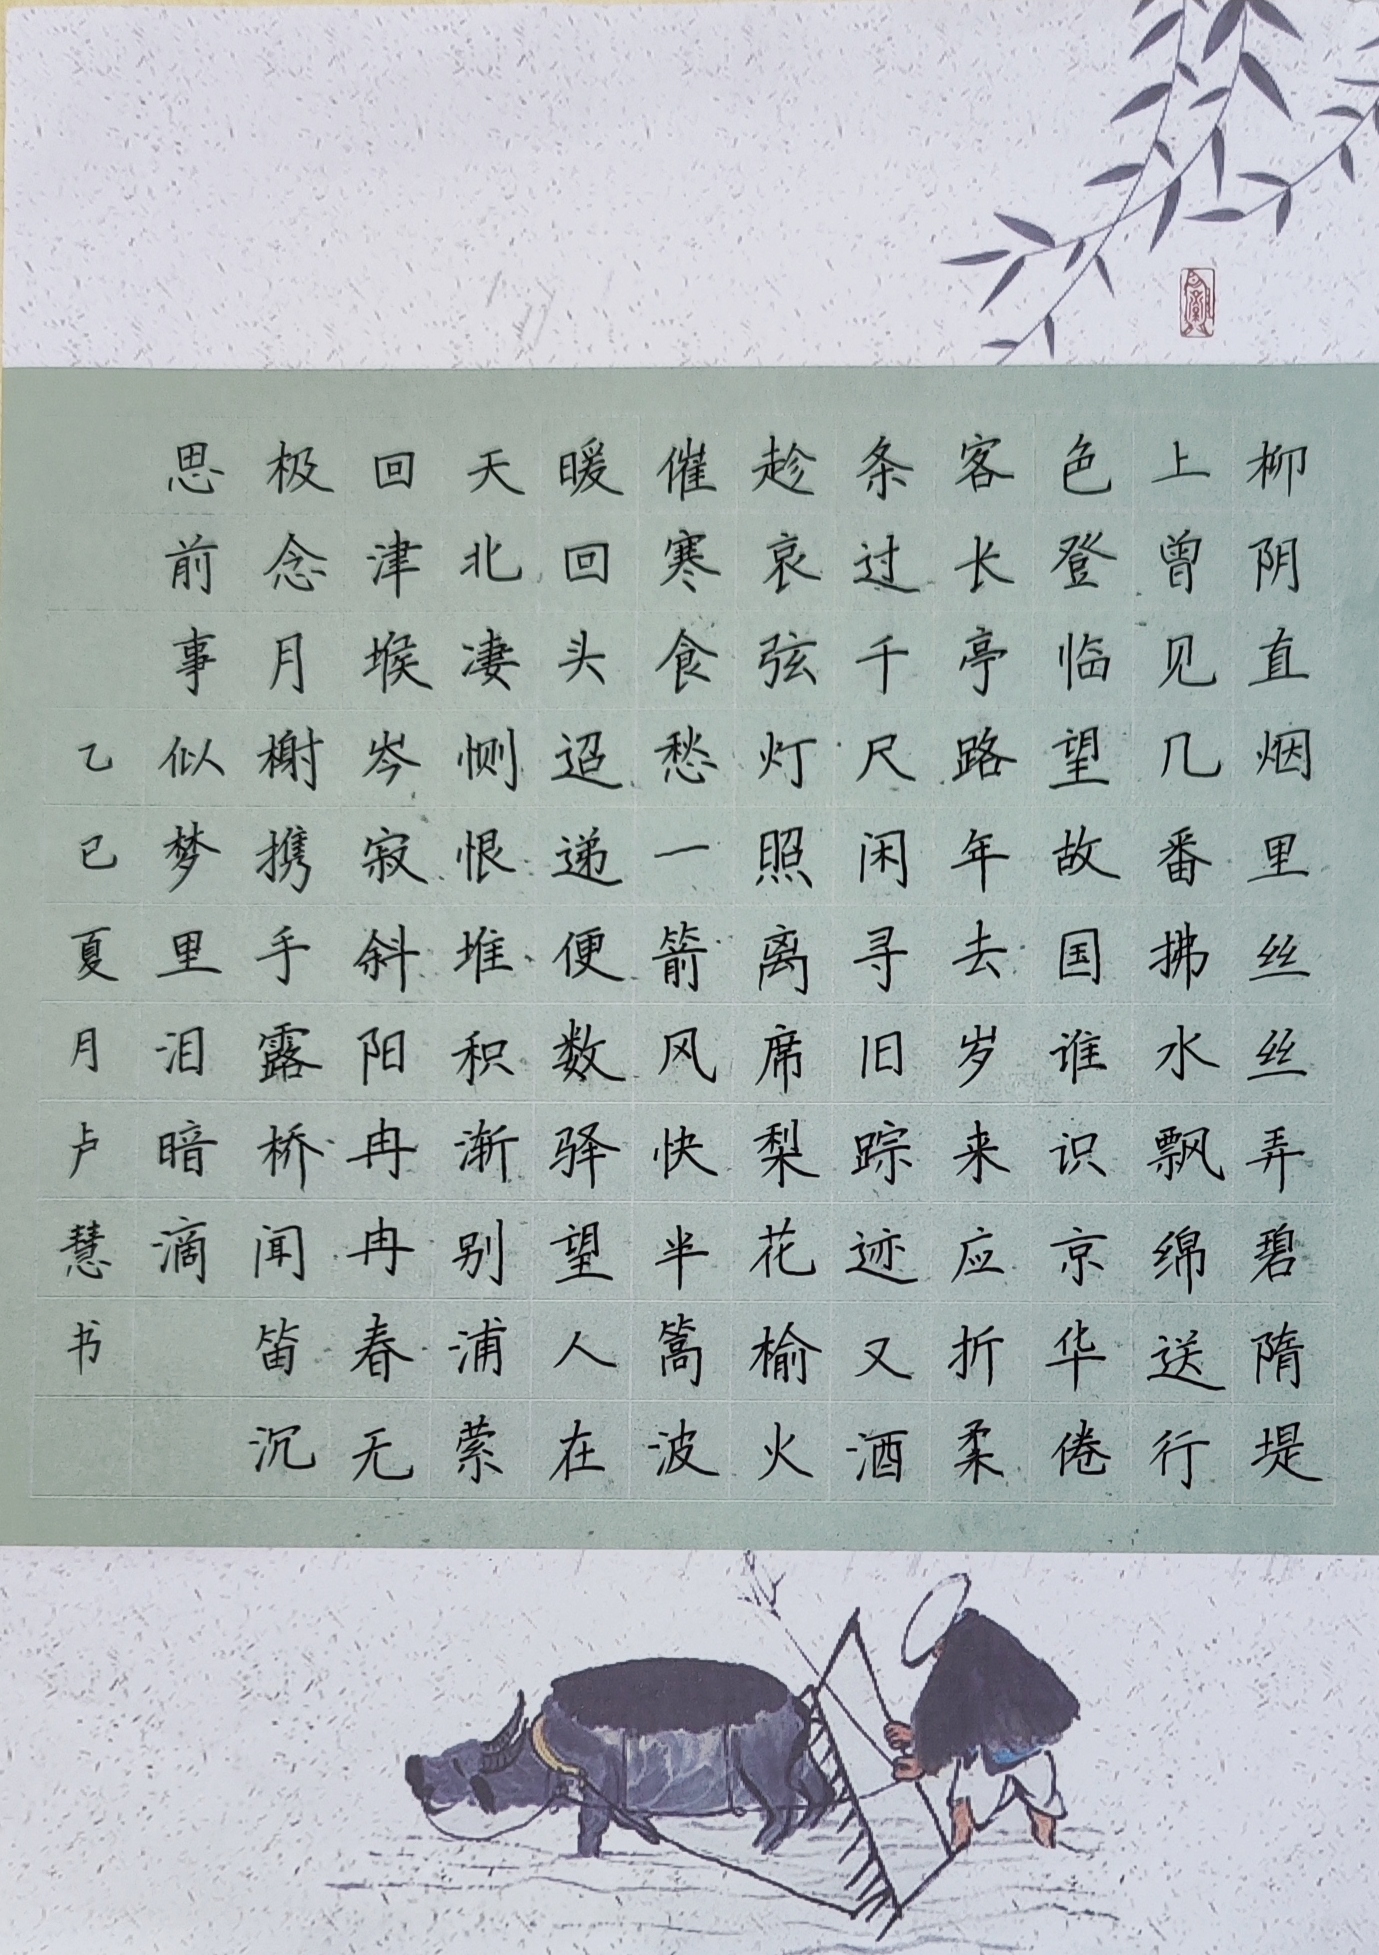 柳阴直烟里丝丝弄碧隋堤
上曾见几番拂水飘绵送行
色登临望故国谁识京华倦
客长亭路年去岁来应折柔
条过千尺闲寻旧踪迹又酒
趁哀弦灯照离席梨花榆火
催寒食愁一箭风快半篙波
暖回头迢递便数驿望人在
天北凄恻恨堆积渐别浦萦
回津堠岑寂斜阳冉冉春无
极念月榭携手露桥闻笛沉
思前事似梦里泪暗滴
乙巳夏月卢慧书